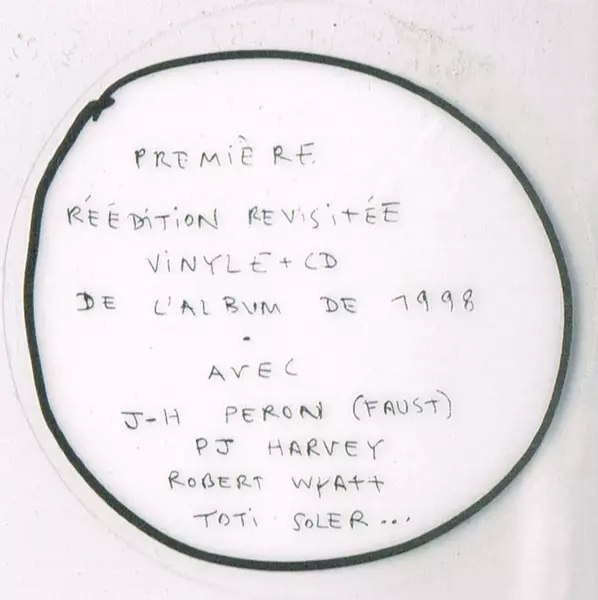 PREMIÈRE
RÉÉDITION REVISITÉE
VINYLE + CD
DE L'ALBUM DE 1998
.
AVEC
J-H PERON (FAUST)
PJ HARVEY
ROBERT WYATT
TOTI SOLER...